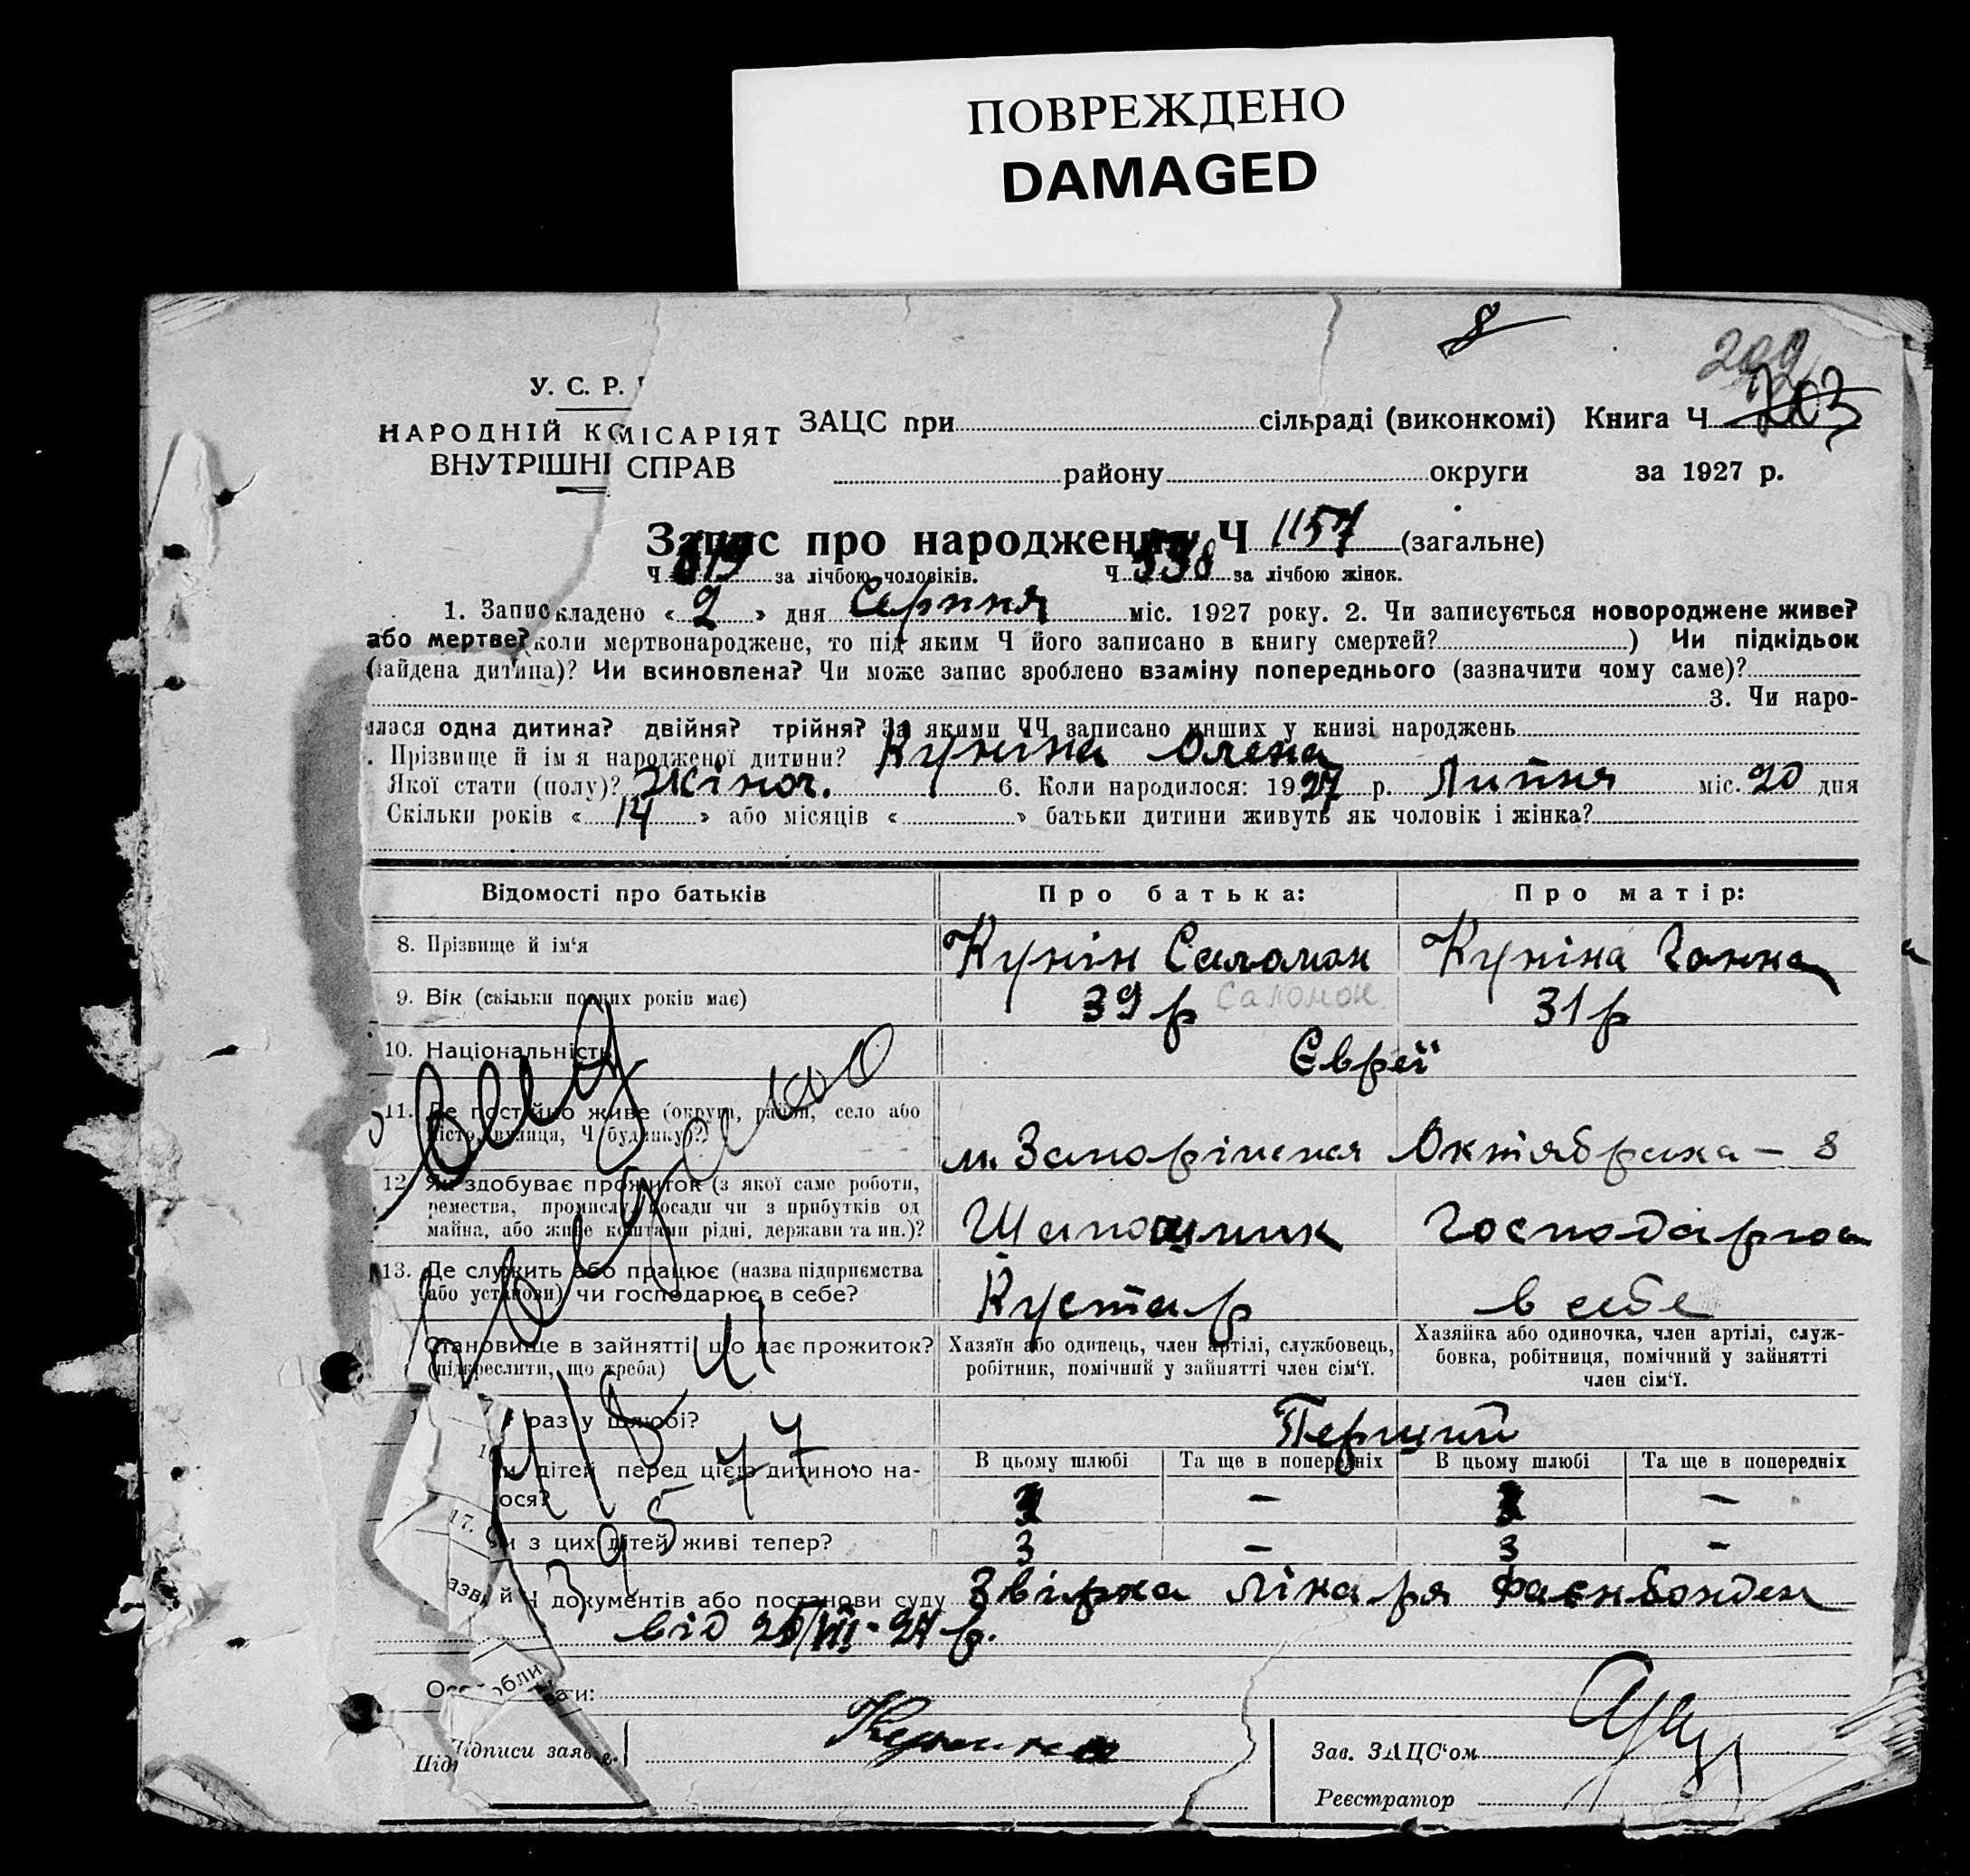 ПОВРЕЖДЕНО
DAMAGED
8
202
У. С. Р. Р
НАРОДНІЙ КОМІСАРІЯТ
ВНУТРІШНІ СПРАВ
ЗАЦС при сільраді (виконкомі) Книга Ч 203
району округи за 1927 р.
Запис про народження Ч 1157 (загальне)
Ч 619 за лічбою чоловіків. Ч 538 за лічбою жінок.
1. Запис кладено « 2 » дня Серпня міс. 1927 року. 2. Чи записується новороджене живе?
або мертве? (коли мертвонароджене, то під яким Ч його записано в книгу смертей? ) Чи підкідьок
(найдена дитина)? Чи всиновлена? Чи може запис зроблено взаміну попереднього (зазначити чому саме)?
3. Чи наро-
илася одна дитина? двійня? трійня? За якими ЧЧ записано инших у книзі народжень
. Прізвище й ім я народженої дитини? Куніна Олена
Якої стати (полу)? Жіноч. 6. Коли народилося: 1927 р. Липня міс. 20 дня
Скільки років « 14 » або місяців « » батьки дитини живуть як чоловік і жінка?
Відомості про батьків Про батька: Про матір:
8. Прізвище й ім'я Кунін Саломон Куніна Ганна
9. Вік (скільки повних років має) 39 р Саломон 31 р
10. Національність Євреї
11. Де постійно живе (округа, район, село або
місто, вулиця, Ч будинку)? м. Запоріжжя Октябрська – 8
12. Як здобуває прожиток (з якої саме роботи,
ремества, промислу, посади чи з прибутків од
майна, або живе коштами рідні, держави та ин.)? Шапошник Господарює
13. Де служить або працює (назва підприємства
або установи) чи господарює в себе? Кустар в себе
Становище в зайнятті що дає прожиток?
(підкреслити, що треба)
Хазяїн або одинець, член артілі, службовець,
робітник, помічний у зайнятті член сім'ї.
Хазяйка або одиночка, член артілі, служ-
бовка, робітниця, помічний у зайнятті
член сім'ї.
раз у шлюбі? Перший
В цьому шлюбі Та ще в попередніх В цьому шлюбі Та ще в попередніх
и дітей перед цією дитиною на-
ося? 3 – 3 –
17. и з цих дітей живі тепер? 3 – 3 –
азви й Ч документів або постанови суду Звірка лікаря
від 25/VII-27 р.
Підписи заяв Куніна
Зав. ЗАЦС'ом
Реєстратор